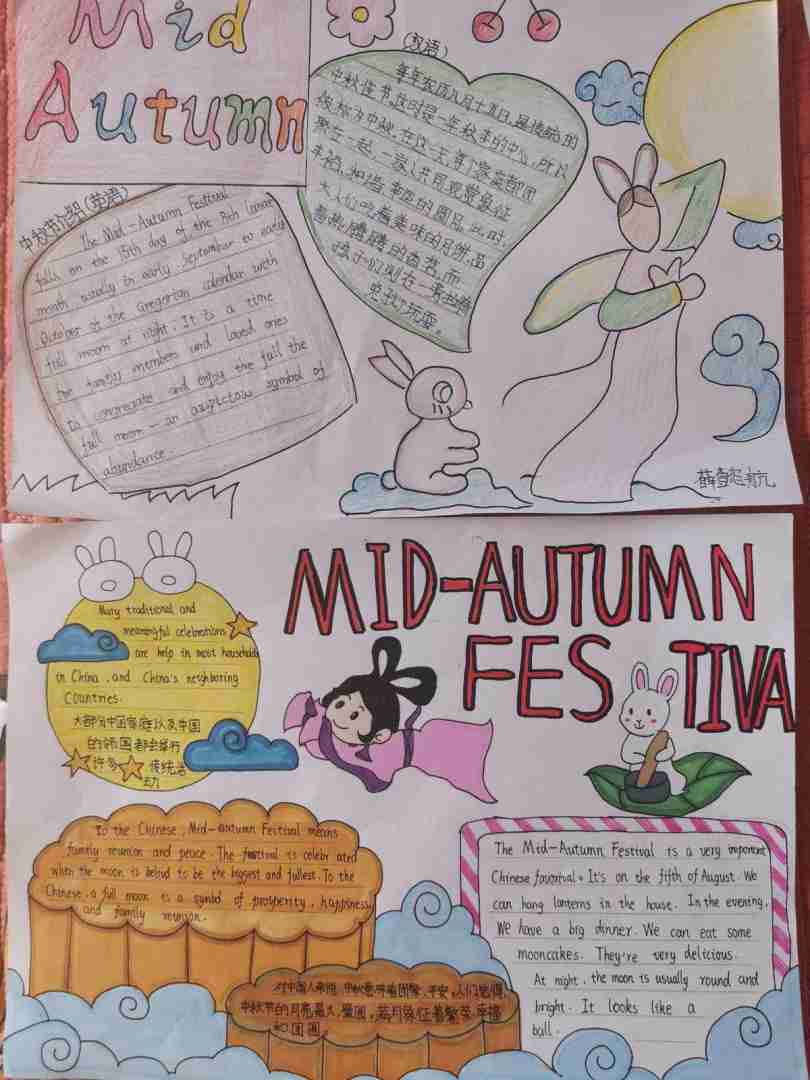 Mid
Autumn
(汉语)
每年农历八月十五日,是传统的
中秋佳节,这时是一年秋季的中心,所以
被称为中秋,在这一天,每个家庭都团
聚在一起,一家人共同观赏象征
丰裕、和谐、幸运的圆月,此时,
大人们吃着美味的月饼,品
着热腾腾的香茗,而
孩子们则在一旁拉着
兔子灯玩耍。
中秋节介绍(英语)
The Mid-Autumn Festival
falls on the 15th day of the 8th lunar
month usually in early September to early
October of the Gregorian calendar with
full moom at night. It is a time
for family members and loved ones
to congregate and enjoy the full the
full moon — an auspictow symbol of
abundance.
MID-AUTUMN
FESTIVA
Many traditional and
meaningful celebrations
are help in most households
in China, and China's neighboring
Countries.
大部分中国家庭以及中国
的邻国都会举行
许多 传统活
动
To the Chinese, Mid-autumn Festival means
family reunion and peace. The festival is celebr ated
when the moon is belivd to be the biggest and fullest. To the
Chinese, a full moon is a symbol of prosperity, happiness,
and family reunion.
对中国人来说,中秋意味着团聚、平安。人们觉得,
中秋节的月亮最大、最圆。满月象征着繁荣、幸福
和团圆。
The Mid-Autumn Festival is a very important
Chinese favorival. It's on the fifth of August. We
can hang lanterns in the house. In the evening,
We have a big dinner. We can eat some
mooncakes. They're very delicious.
At night, the moon is usually round and
bright. It looks like a
ball.